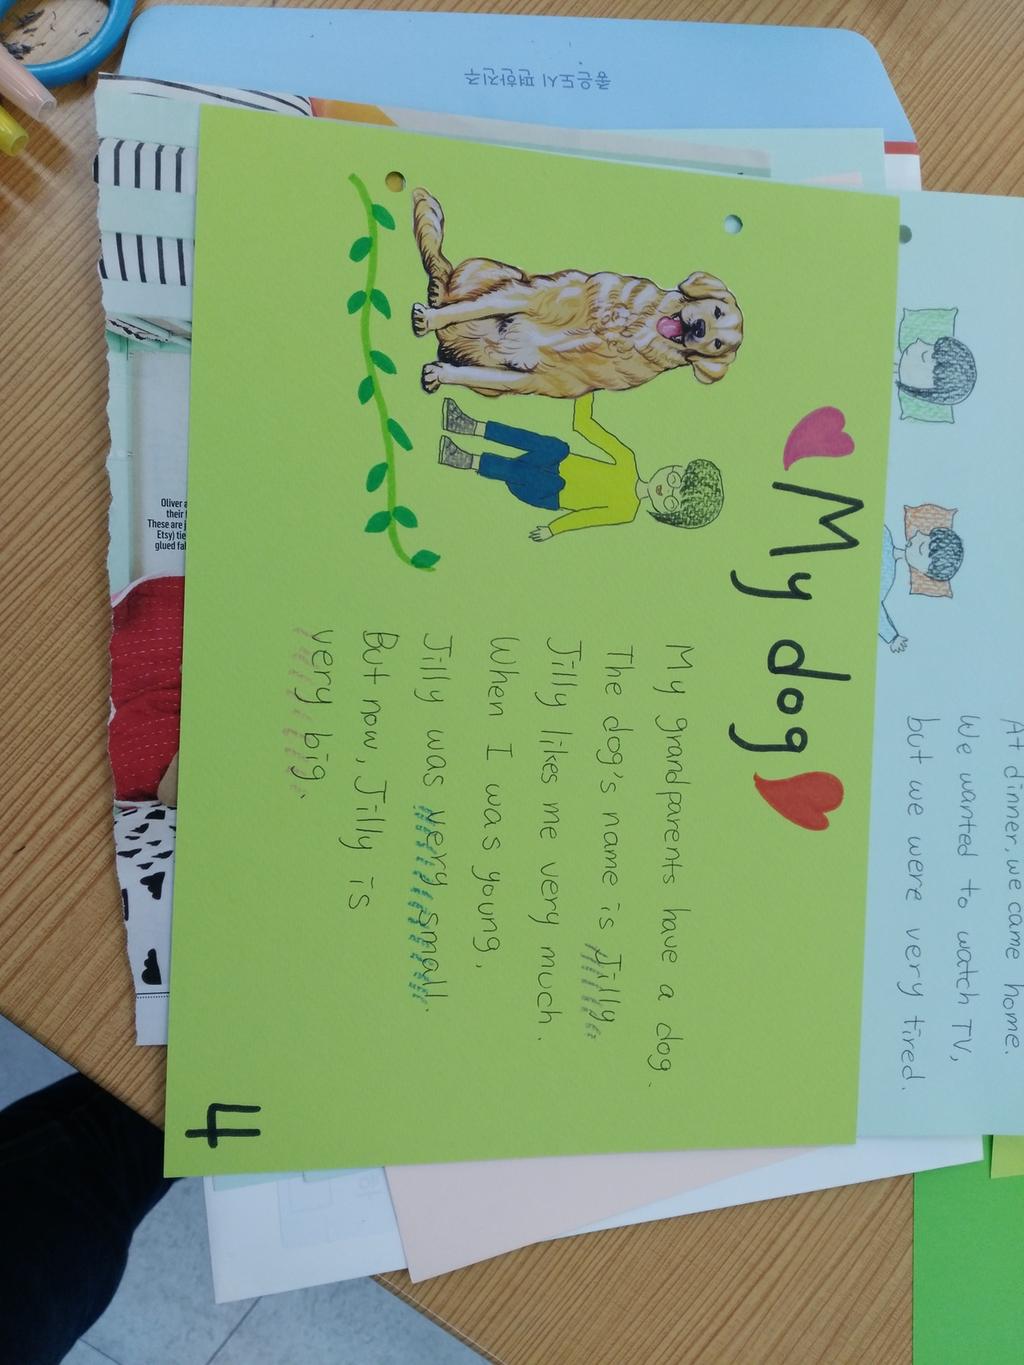 좋은도시 편한진주
My dog
My grandparents have a dog.
The dog's name is Jilly.
Jilly likes me very much.
When I was young,
Jilly was very small.
But now, Jilly is
very big.
4
At dinner, we came home.
We wanted to watch TV,
but we were very tired.
Oliver a
their
These are
Etsy) tie
glued fa